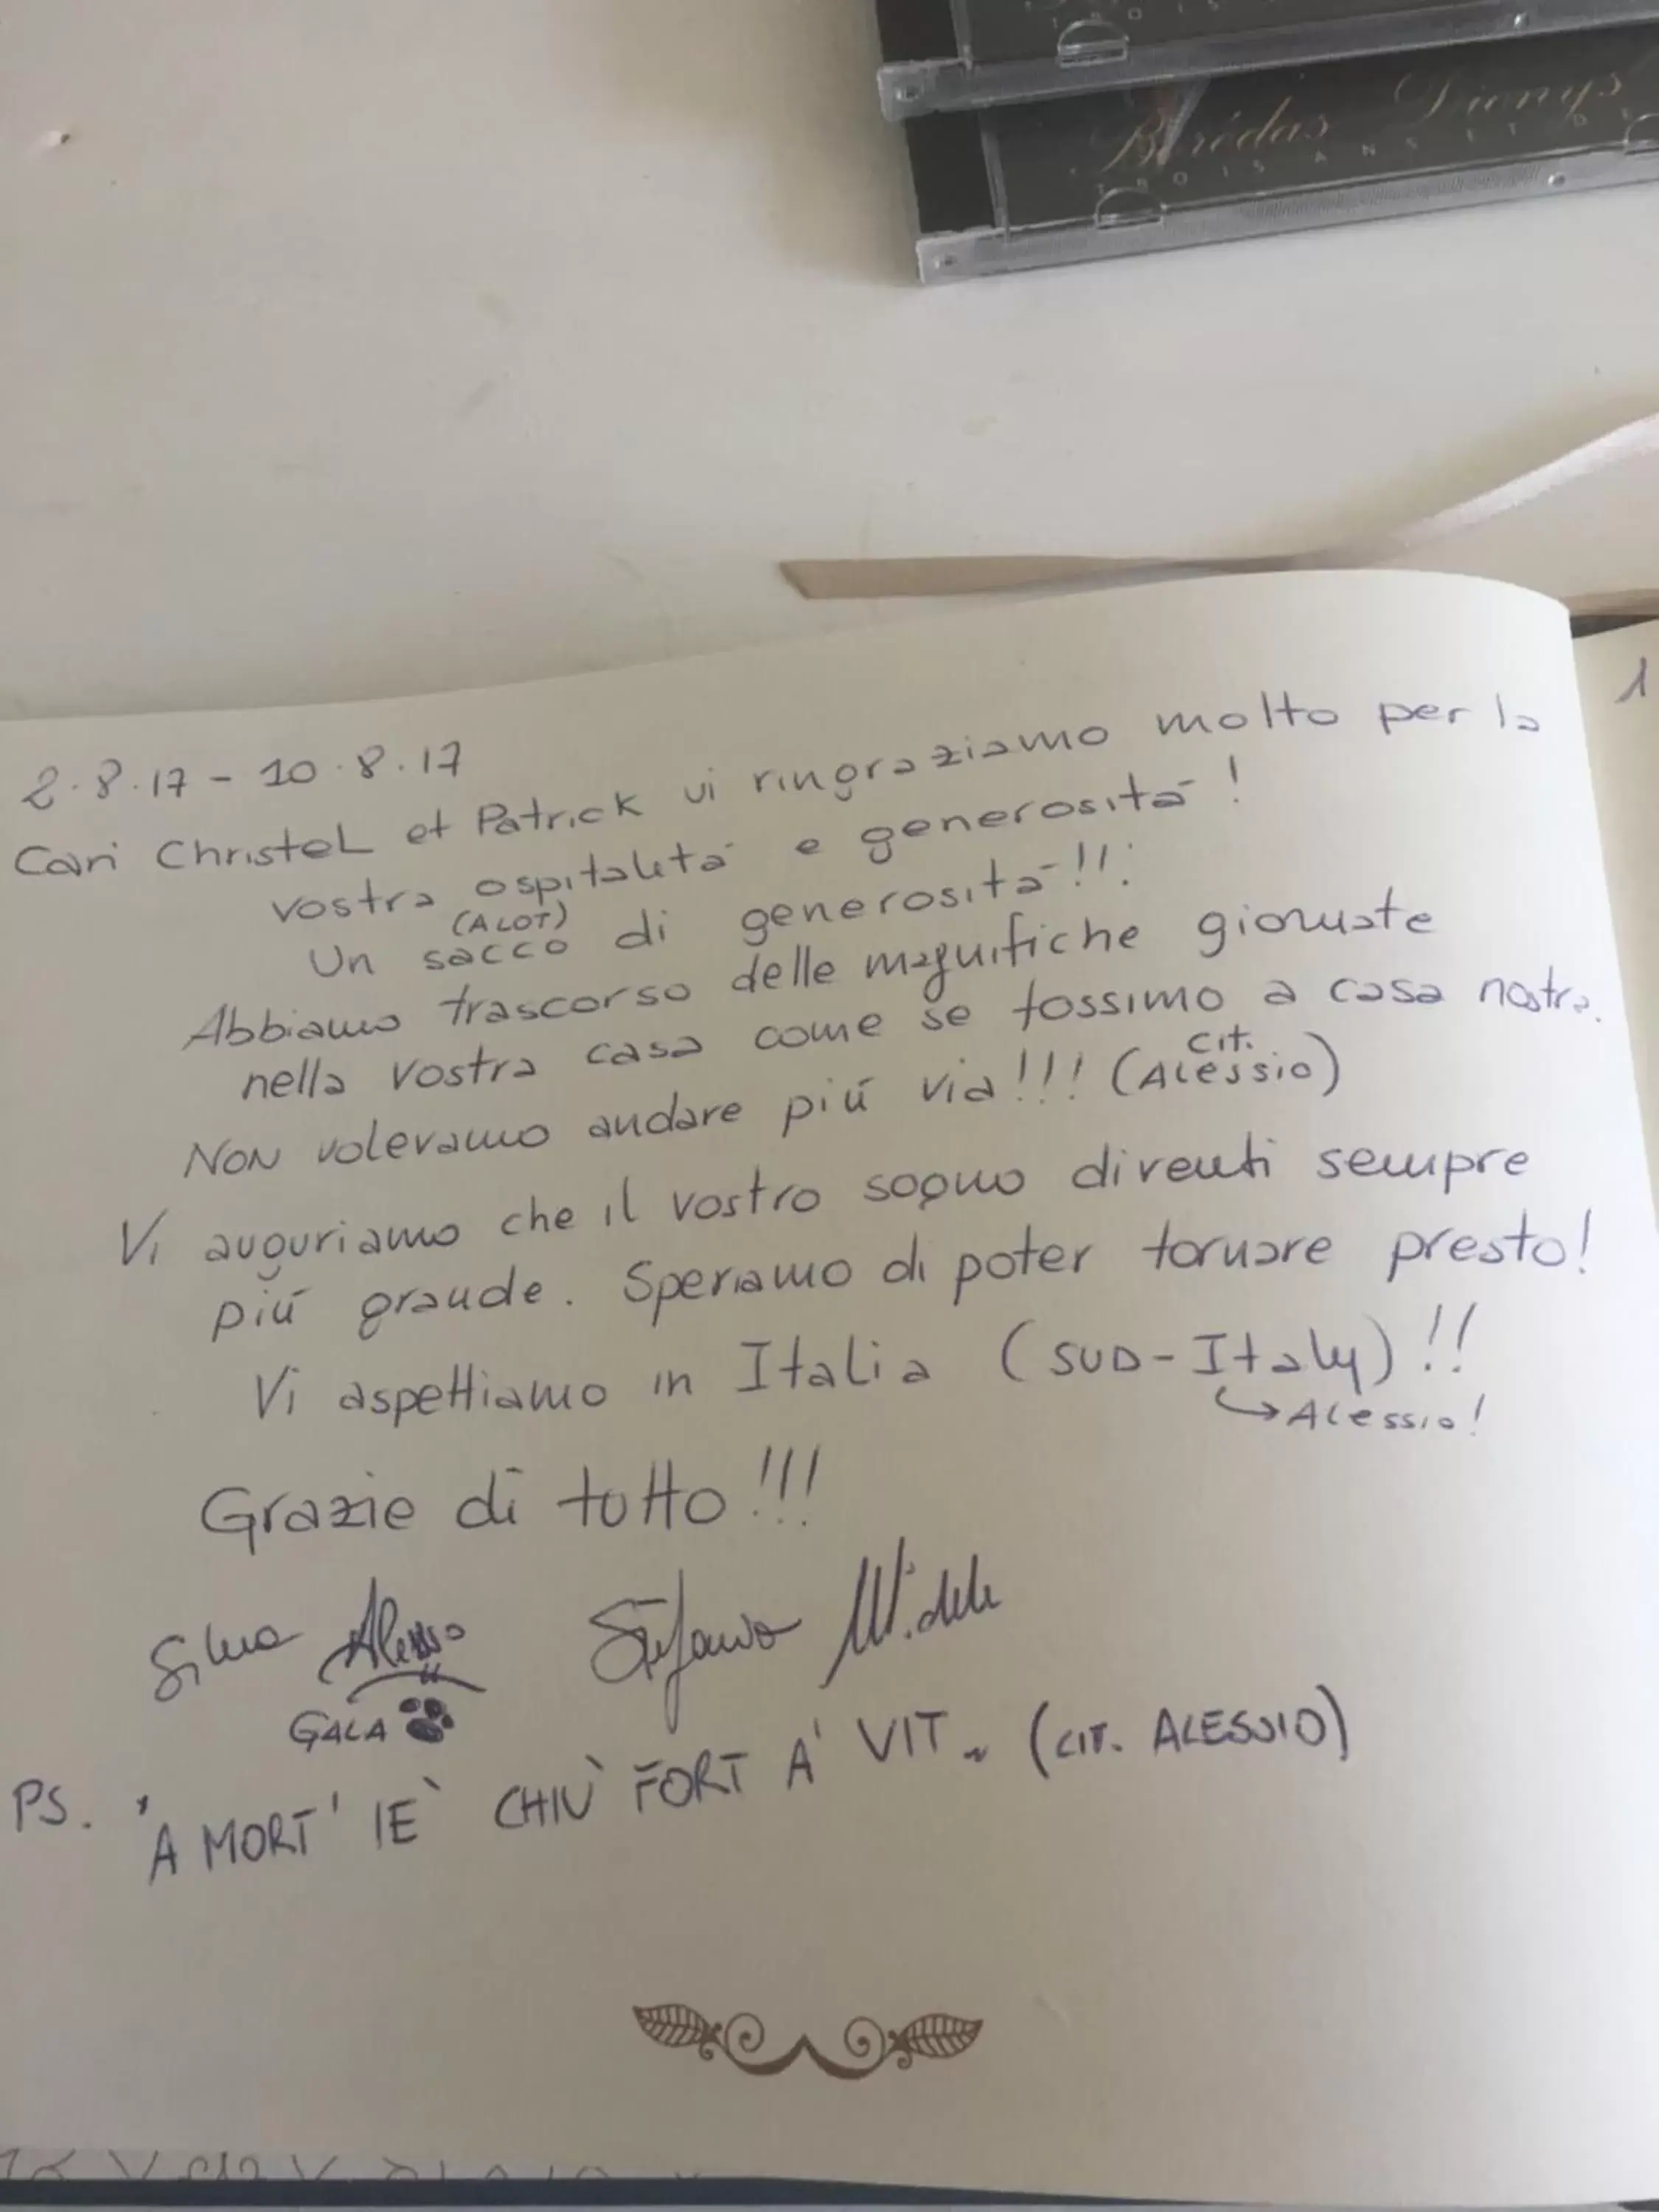 Bérédas Dionys
TROIS ANS ET DE
1
2.8.17 - 10.8.17
Cari Christel et Patrick vi ringraziamo molto per la
vostra ospitalità e generosità!
(A LOT)
Un sacco di generosità!!!
Abbiamo trascorso delle magnifiche giornate
nella vostra casa come se fossimo a casa nostra.
cit.
NON volevamo andare più via!!! (Alessio)
Vi auguriamo che il vostro sogno diventi sempre
più grande. Speriamo di poter tornare presto!
Vi aspettiamo in Italia (SUD-Italy)!!
→ Alessio!
Grazie di tutto!!!
Silvia Alessio Stefania Michele
GALA
PS. "A MORT' IE` CHIÙ FORT A' VIT" (CIT. ALESSIO)